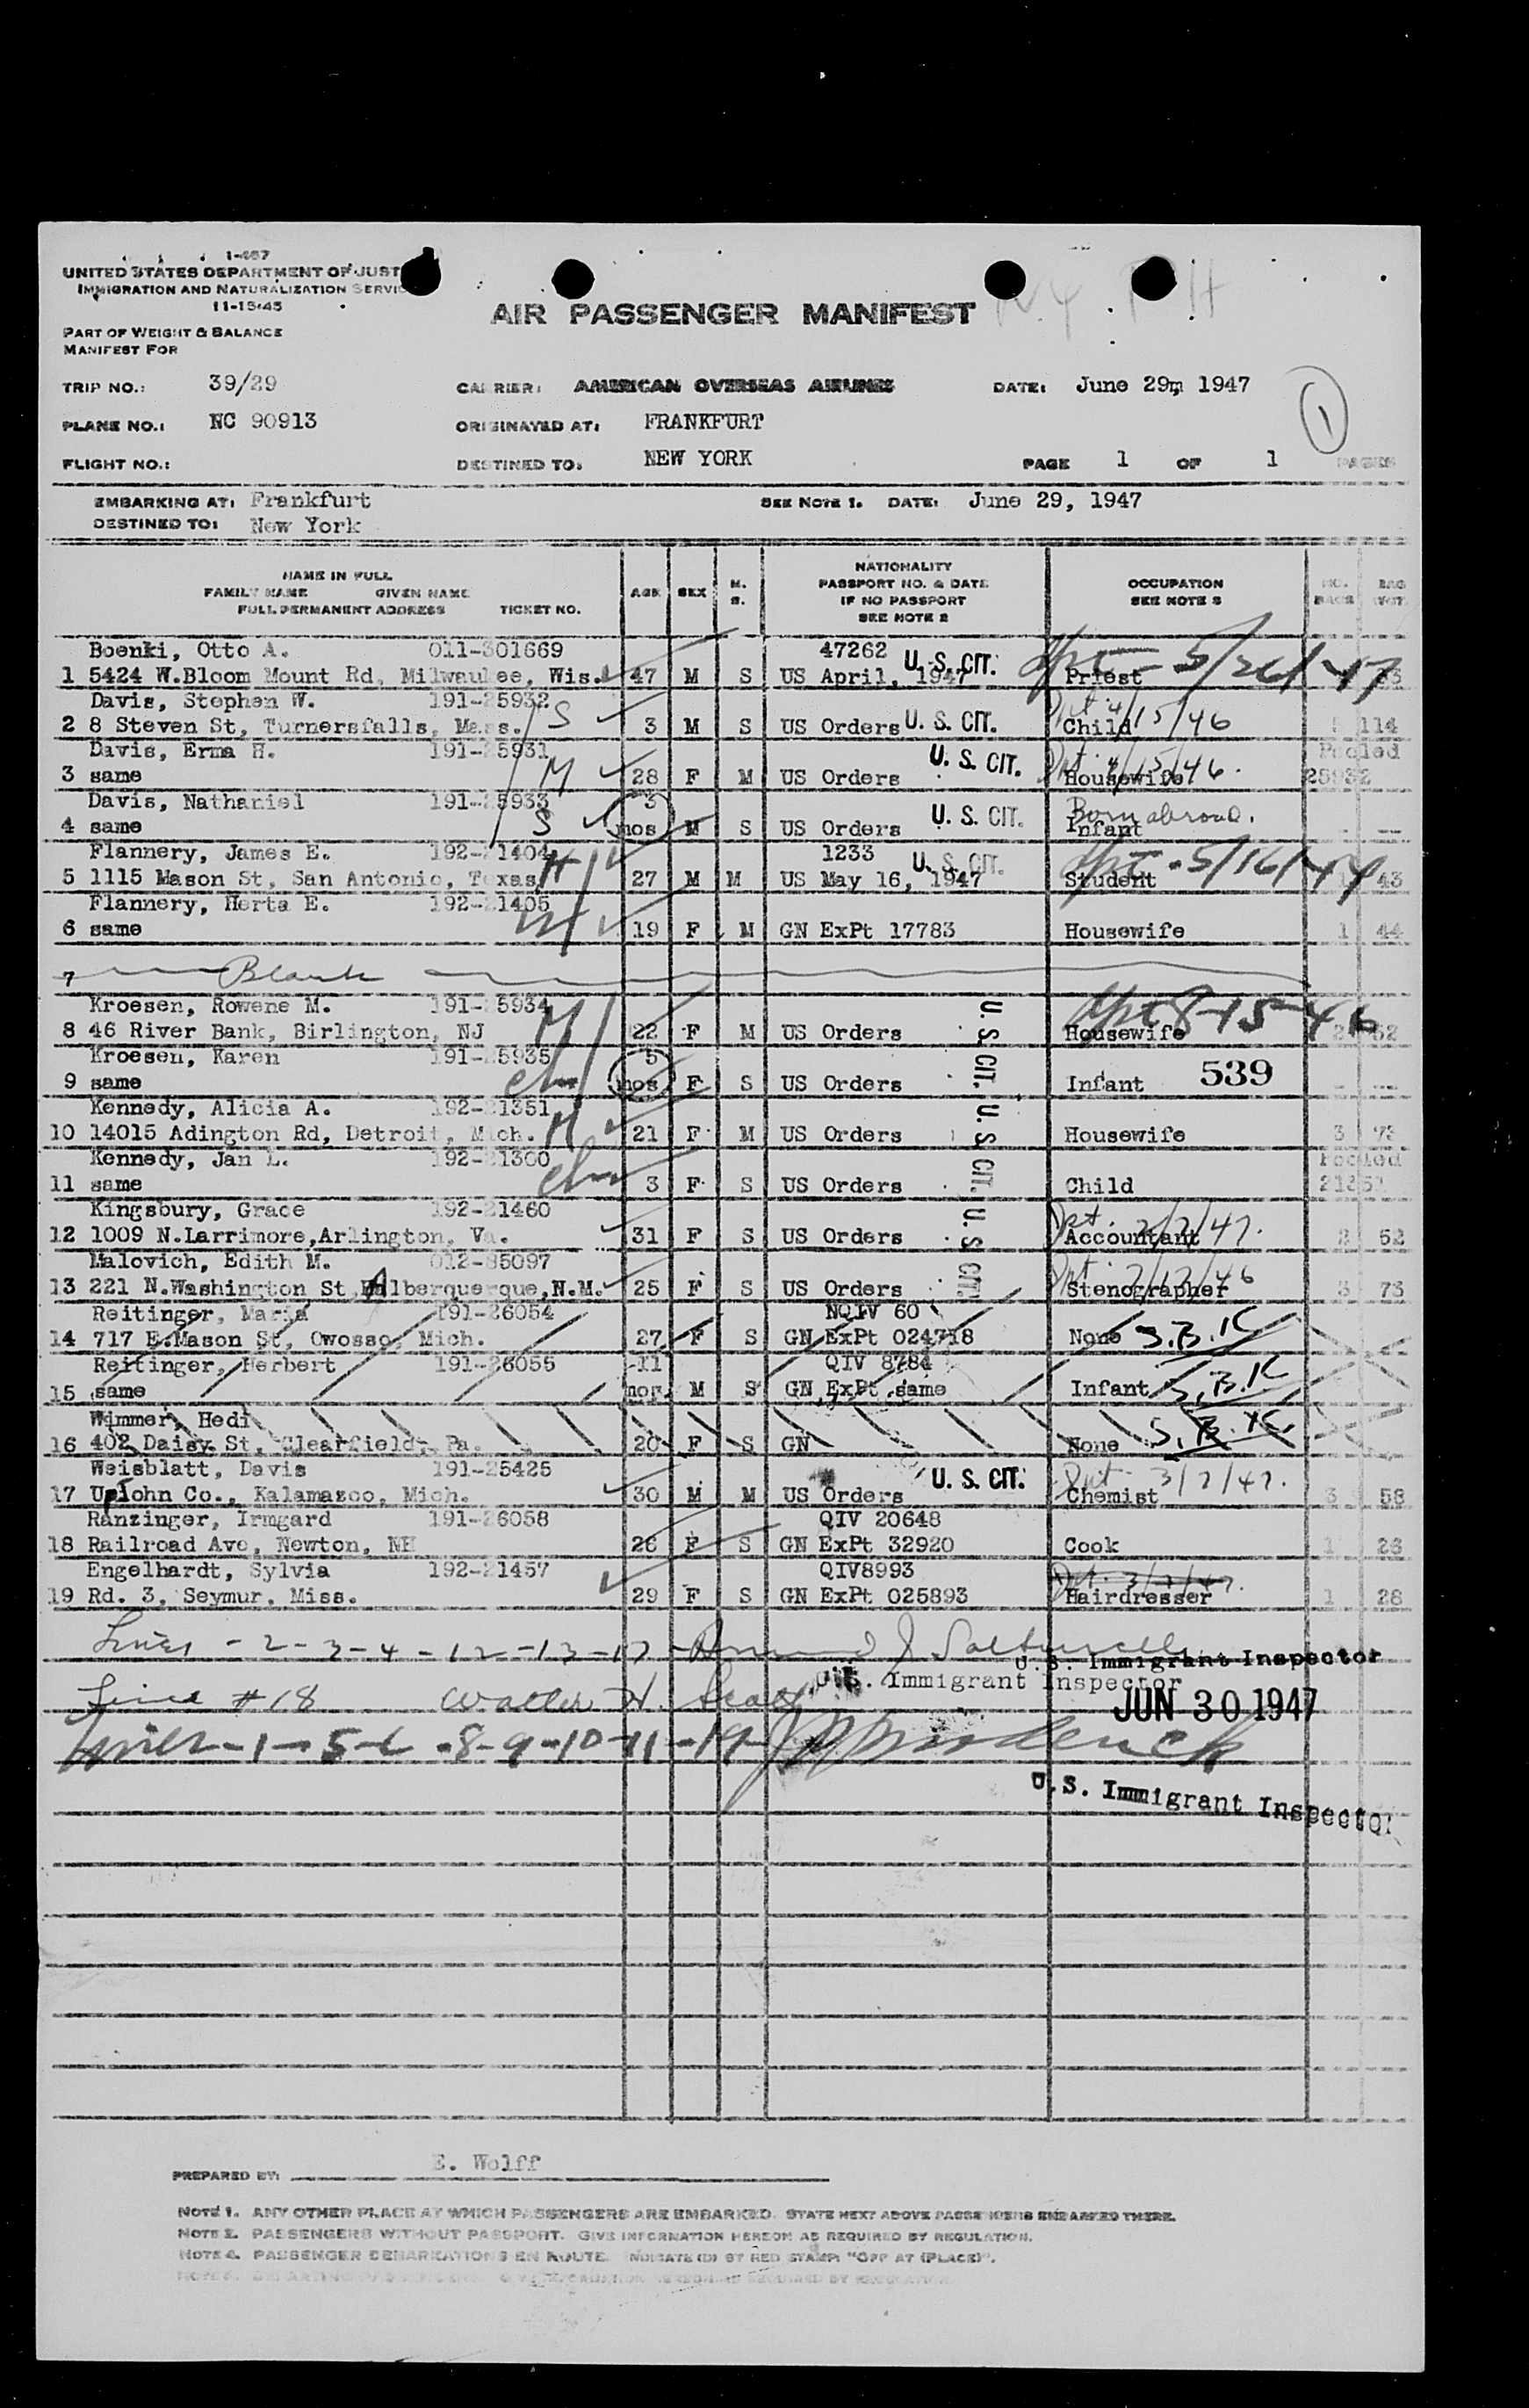 1-467
UNITED STATES DEPARTMENT OF JUST
IMMIGRATION AND NATURALIZATION SERVIC
11-15-45
AIR PASSENGER MANIFEST
PART OF WEIGHT & BALANCE
MANIFEST FOR
TRIP NO.: 39/29 CARRIER: AMERICAN OVERSEAS AIRLINES DATE: June 29, 1947
1
PLANE NO.: NC 90913 ORIGINATED AT: FRANKFURT
FLIGHT NO.: DESTINED TO: NEW YORK PAGE 1 OF 1 PAGES
EMBARKING AT: Frankfurt SEE NOTE 1. DATE: June 29, 1947
DESTINED TO: New York
NAME IN FULL
FAMILY NAME GIVEN NAME
FULL PERMANENT ADDRESS TICKET NO.
AGE SEX M. S.
NATIONALITY
PASSPORT NO. & DATE
IF NO PASSPORT
SEE NOTE 2
OCCUPATION
SEE NOTE 3
NO. BAGS BAG WGT.
Boenki, Otto A. 011-301669 47262 U.S. CIT. 5/26/47
1 5424 W.Bloom Mount Rd, Milwaukee, Wis. 47 M S US April, 1947 Priest
Davis, Stephen W. 191-25932 S 4/15/46
2 8 Steven St, Turnersfalls, Mass. 3 M S US Orders U. S. CIT. Child 114
Davis, Erma H. 191-25931 U. S. CIT. 4/15/46. Pooled
3 same M 28 F M US Orders Housewife 25932
Davis, Nathaniel 191-25933 3 U. S. CIT. Born abroad.
4 same S mos M S US Orders Infant
Flannery, James E. 192-21404 1233 U. S. CIT. 5/16/47
5 1115 Mason St, San Antonio, Texas H 27 M M US May 16, 1947 Student 43
Flannery, Herta E. 192-21405
6 same 19 F M GN ExPt 17783 Housewife 1 44
7 Blank
Kroesen, Rowene M. 191-25934 M U. S. CIT. 8-15-46
8 46 River Bank, Birlington, NJ 22 F M US Orders Housewife 52
Kroesen, Karen 191-25935 5 539
9 same mos F S US Orders Infant
Kennedy, Alicia A. 192-21351 U. S. CIT.
10 14015 Adington Rd, Detroit, Mich. M 21 F M US Orders Housewife 3 73
Kennedy, Jan L. 192-21300 Pooled
11 same 3 F S US Orders Child 21351
Kingsbury, Grace 192-21460 U. S. CIT.
12 1009 N.Larrimore,Arlington, Va. 31 F S US Orders Accountant 2 52
Malovich, Edith M. 012-85097
13 221 N.Washington St Albequerque,N.M. 25 F S US Orders Stenographer 3 73
Reitinger, Maria 191-26054 NQIV 60
14 717 E.Mason St, Owosso, Mich. 27 F S GN ExPt 024718 None S.B.K
Reitinger, Herbert 191-26055 11 QIV 8784
15 same mos M S GN ExPt same Infant S.B.K
Wimmer, Hedi
16 402 Daisy St, Clearfield, Pa. 20 F S GN None S.B.K.
Weisblatt, Davis 191-25425 U. S. CIT. 3/7/47.
17 UpJohn Co., Kalamazoo, Mich. 30 M M US Orders Chemist 3 58
Ranzinger, Irmgard 191-26058 QIV 20648
18 Railroad Ave, Newton, NH 26 F S GN ExPt 32920 Cook 1 26
Engelhardt, Sylvia 192-21457 QIV8993
19 Rd. 3, Seymur, Miss. 29 F S GN ExPt 025893 Hairdresser 1 28
Lines - 2 - 3 - 4 - 12 - 13 - 17
U.S. Immigrant Inspector
U.S. Immigrant Inspector
Line # 18 Walter H.
JUN 30 1947
Lines - 1 - 5 - 6 - 8 - 9 - 10 - 11 - 19
U.S. Immigrant Inspector
PREPARED BY: E. Wolff
NOTE 1. ANY OTHER PLACE AT WHICH PASSENGERS ARE EMBARKED. STATE NEXT ABOVE PASSENGERS EMBARKED THERE.
NOTE 2. PASSENGERS WITHOUT PASSPORT. GIVE INFORMATION HEREON AS REQUIRED BY REGULATION.
NOTE 4. PASSENGER DEBARKATIONS EN ROUTE. INDICATE (D) BY RED STAMP: "OFF AT (PLACE)".